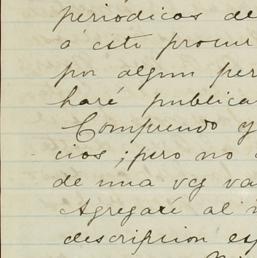 periódicos de
á este procur
por algun per
haré publica
Comprendo y
cios; pero no
de una vez va
Agregaré al
descripcion es